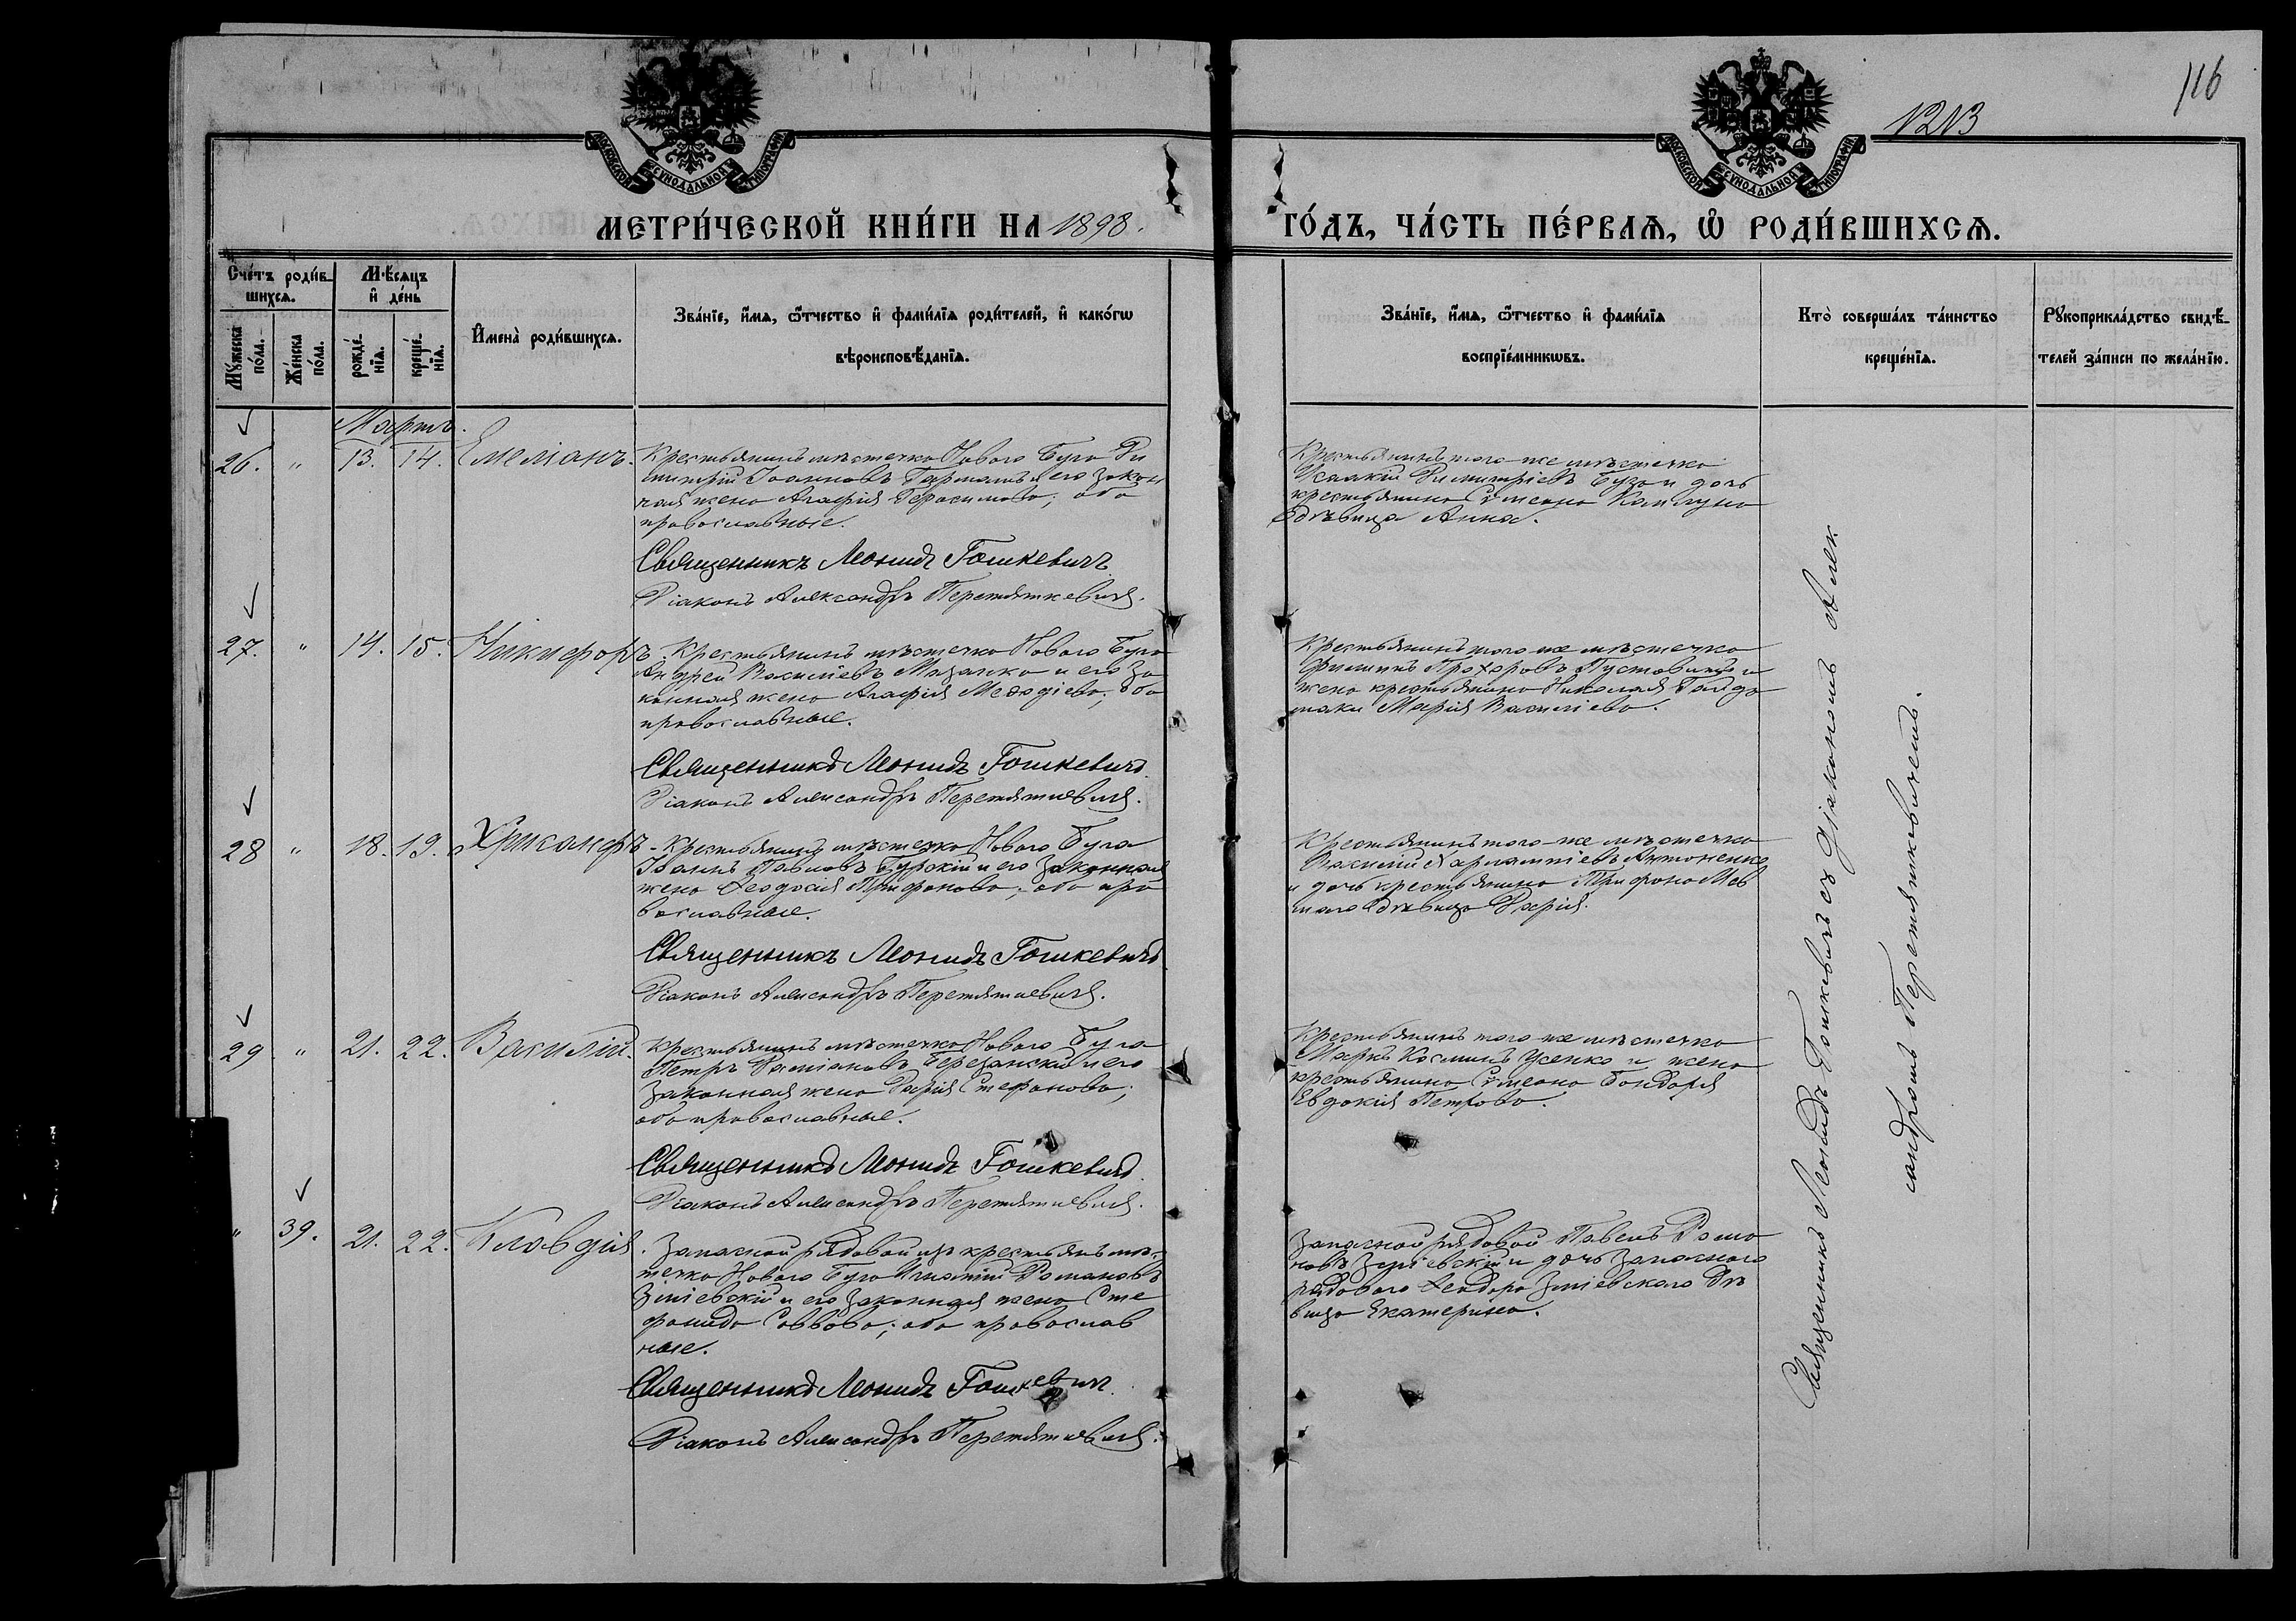 116
1213
МОСКОВСКОЙ СѴНОДАЛЬНОЙ ТИПОГРАФІИ
МОСКОВСКОЙ СѴНОДАЛЬНОЙ ТИПОГРАФІИ
МЕТРИ́ЧЕСКОЙ КНИ́ГИ НА 1898.
ГО́ДЪ, ЧА́СТЬ ПЕ́РВАѦ, Ѡ҆ РОДИ́ВШИХСѦ.
Сче́тъ роди́в-
шихсѧ.
Мѣ́сѧцъ
и҆ де́нь
Мꙋ́жеска
по́ла.
Же́нска
по́ла.
рожде́-
нїѧ.
креще́-
нїѧ.
И҆мена̀ роди́вшихсѧ.
Зва́нїе, и҆́мѧ, ѻ҆́тчество и҆ фами́лїѧ роди́телей, и҆ како́гѡ
вѣроисповѣ́данїѧ.
Зва́нїе, и҆́мѧ, ѻ҆́тчество и҆ фами́лїѧ
воспрїе́мникѡвъ.
Кто̀ соверша́лъ та́инство
креще́нїѧ.
Рꙋкоприкла́дство свидѣ́-
телей за́писи по жела́нїю.
Мартъ.
26. " 13. 14. Емеліанъ.
Крестьянинъ мѣстечка Новаго Буга Ди
митрій Іоанновъ и его закон
ная жена Агафія Герасимова; оба
православные.
Священникъ Леонидъ Гошкевичъ
Діаконъ Александръ Перетяткевичъ.
Крестьянинъ того-же мѣстечка
Исаакій Димитріевъ и дочь
крестьянина Сѵмеона
дѣвица Анна.
27. " 14. 15. Никифоръ.
Крестьянинъ мѣстечка Новаго Буга
Андрей Василіевъ и его за
конная жена Агафія Меѳодіева; оба
православные.
Священникъ Леонидъ Гошкевичъ
Діаконъ Александръ Перетяткевичъ.
Крестьянинъ того же мѣстечка
Филиппъ Прохоровъ и
жена крестьянина Николая Гайда
маки Марія Василіева.
28 " 18. 19. Хрисанфъ.
Крестьянинъ мѣстечка Новаго Буга
Іоаннъ Павловъ Бурскій и его законная
жена Ѳеодосія Трифонова; оба пра
вославные.
Священникъ Леонидъ Гошкевичъ
Діаконъ Александръ Перетяткевичъ.
Крестьянинъ того-же мѣстечка
Василій Харлампіевъ Антоненко
и дочь крестьянина Трифона
дѣвица Дарія.
29 " 21. 22. Василій.
Крестьянинъ мѣстечка Новаго Буга
Петръ Даміановъ Березанскій и его
законная жена Дарія Стефанова;
оба православные.
Священникъ Леонидъ Гошкевичъ
Діаконъ Александръ Перетяткевичъ.
Крестьянинъ того же мѣстечка
Маркъ Косминъ Усенко и жена
крестьянина Сѵмеона Бондаря
Евдокія Петрова.
" 39. 21. 22. Клавдія.
Запасной рядовой изъ крестьянъ мѣс-
течка Новаго Буга Игнатій Романовъ
Зміевскій и его законная жена Сте
фанида Саввова; оба православ
ные.
Священникъ Леонидъ Гошкевичъ
Діаконъ Александръ Перетяткевичъ.
Запасной рядовой Павелъ Рома
новъ Зміевскій и дочь запаснаго
рядового Ѳеодора Зміевскаго дѣ
вица Екатерина.
Священникъ Леонидъ Гошкевичъ съ діакономъ Алек
сандромъ Перетяткевичемъ.